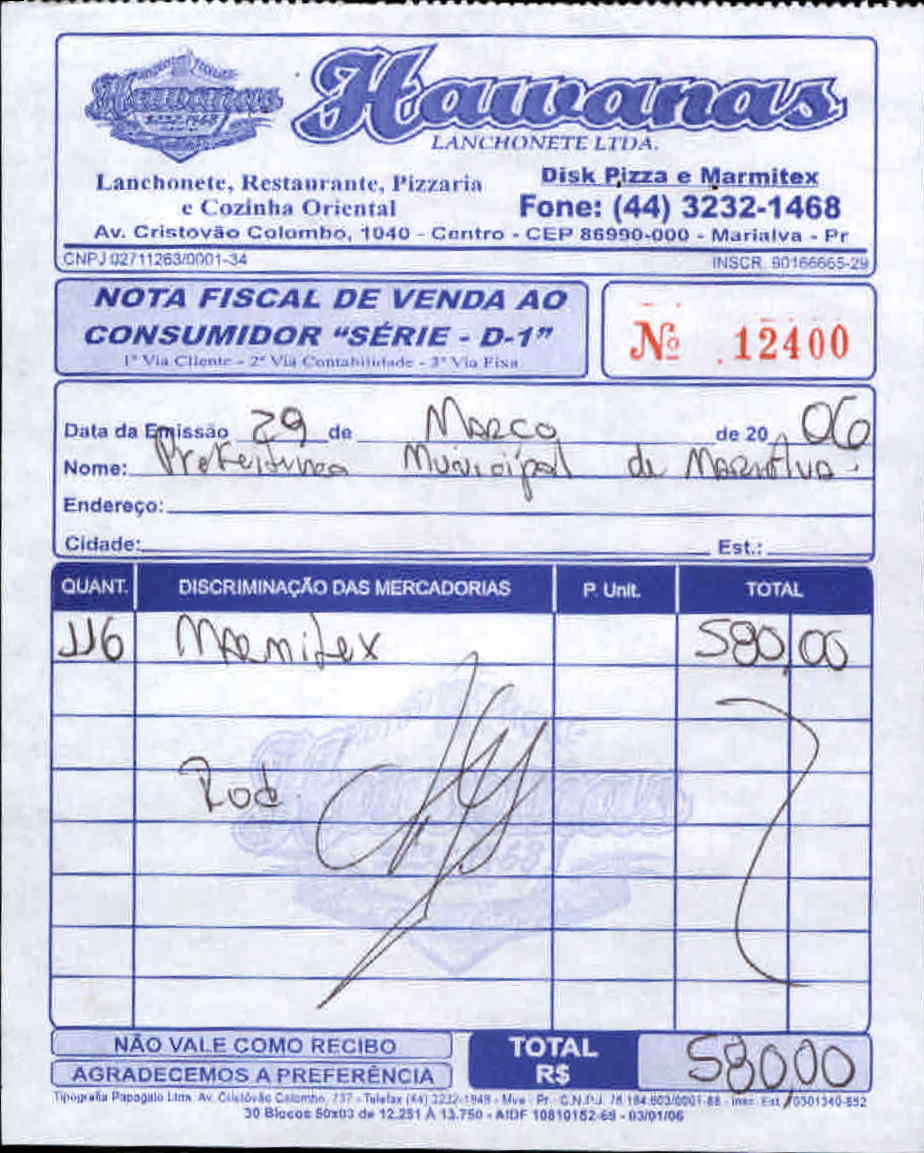 Hawanas
LANCHONETE LTDA.
Lanchonete, Restaurante, Pizzaria
e Cozinha Oriental
Disk Pizza e Marmitex
Fone: (44) 3232-1468
Av. Cristovão Colombo, 1040 - Centro - CEP 86990-000 - Marialva - Pr
CNPJ 02711263/0001-34 INSCR. 90166665-29
NOTA FISCAL DE VENDA AO
CONSUMIDOR "SÉRIE - D-1"
1ª Via Cliente - 2ª Via Contabilidade - 3ª Via Fixa
Nº 12400
Data da Emissão 29 de Março de 20 06
Nome: Prefeitura Municipal de Marialva
Endereço:
Cidade: Est.:
QUANT. DISCRIMINAÇÃO DAS MERCADORIAS P. Unit. TOTAL
116 Marmitex 580,00
Rod.
NÃO VALE COMO RECIBO
AGRADECEMOS A PREFERÊNCIA
TOTAL
R$ 580,00
Tipografia Papagaio Ltda. Av. Cristóvão Colombo, 737 - Telefax (44) 3232-1848 - Mva - Pr - C.N.P.J. 78.184.603/0001-88 - Insc. Est.
30 Blocos 50x03 de 12.251 À 13.750 - AIDF 10810152-69 - 03/01/06